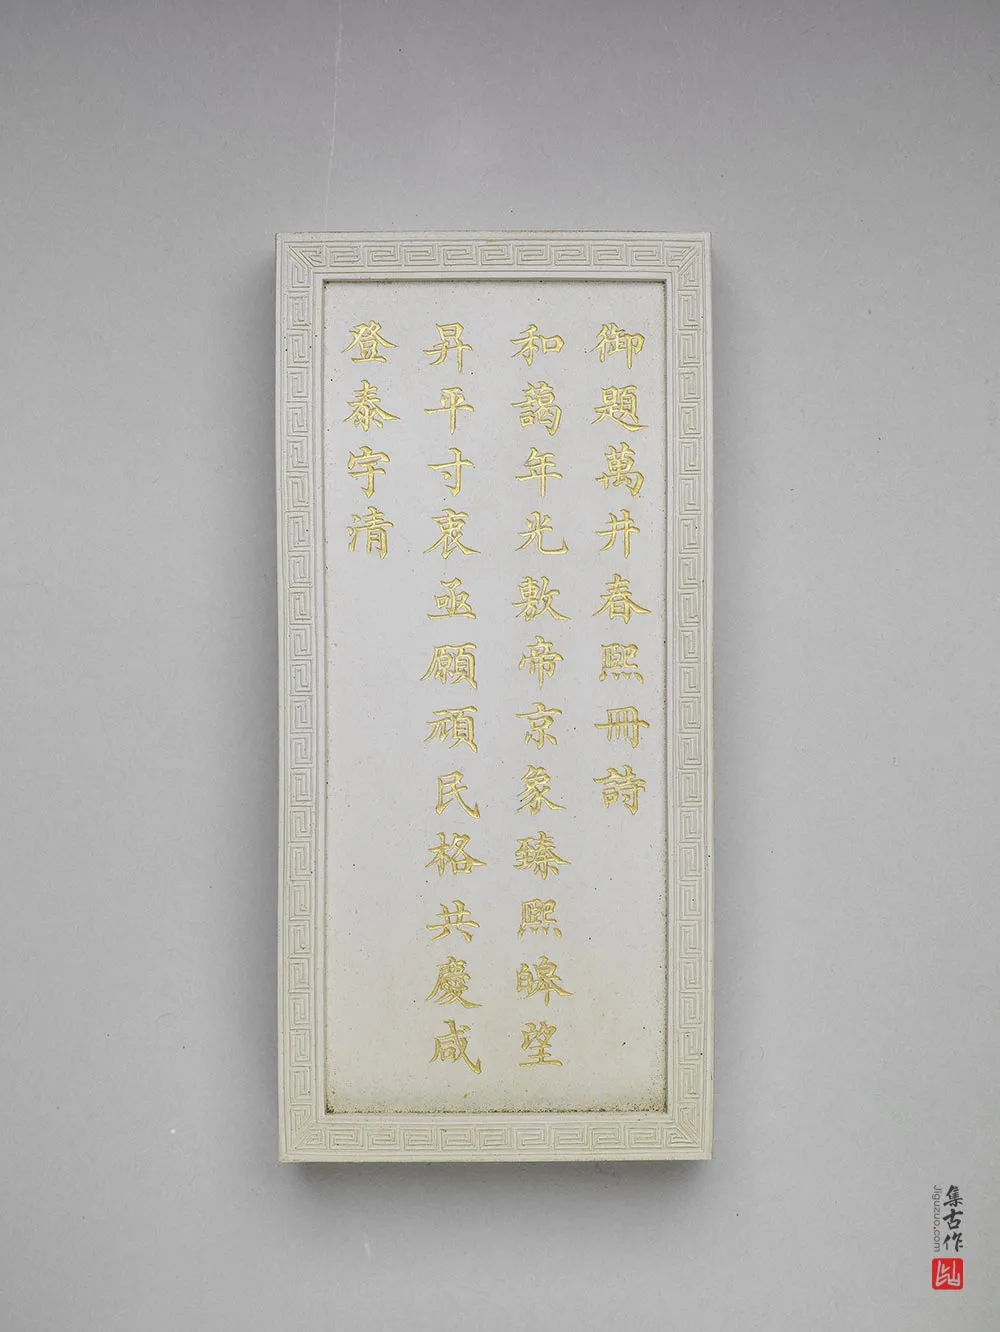 御題萬井春熙冊詩
和藹年光敷帝京象臻熙皞望
昇平寸衷亟願頑民格共慶咸
登泰宇清
集古作
jiguzuo.com